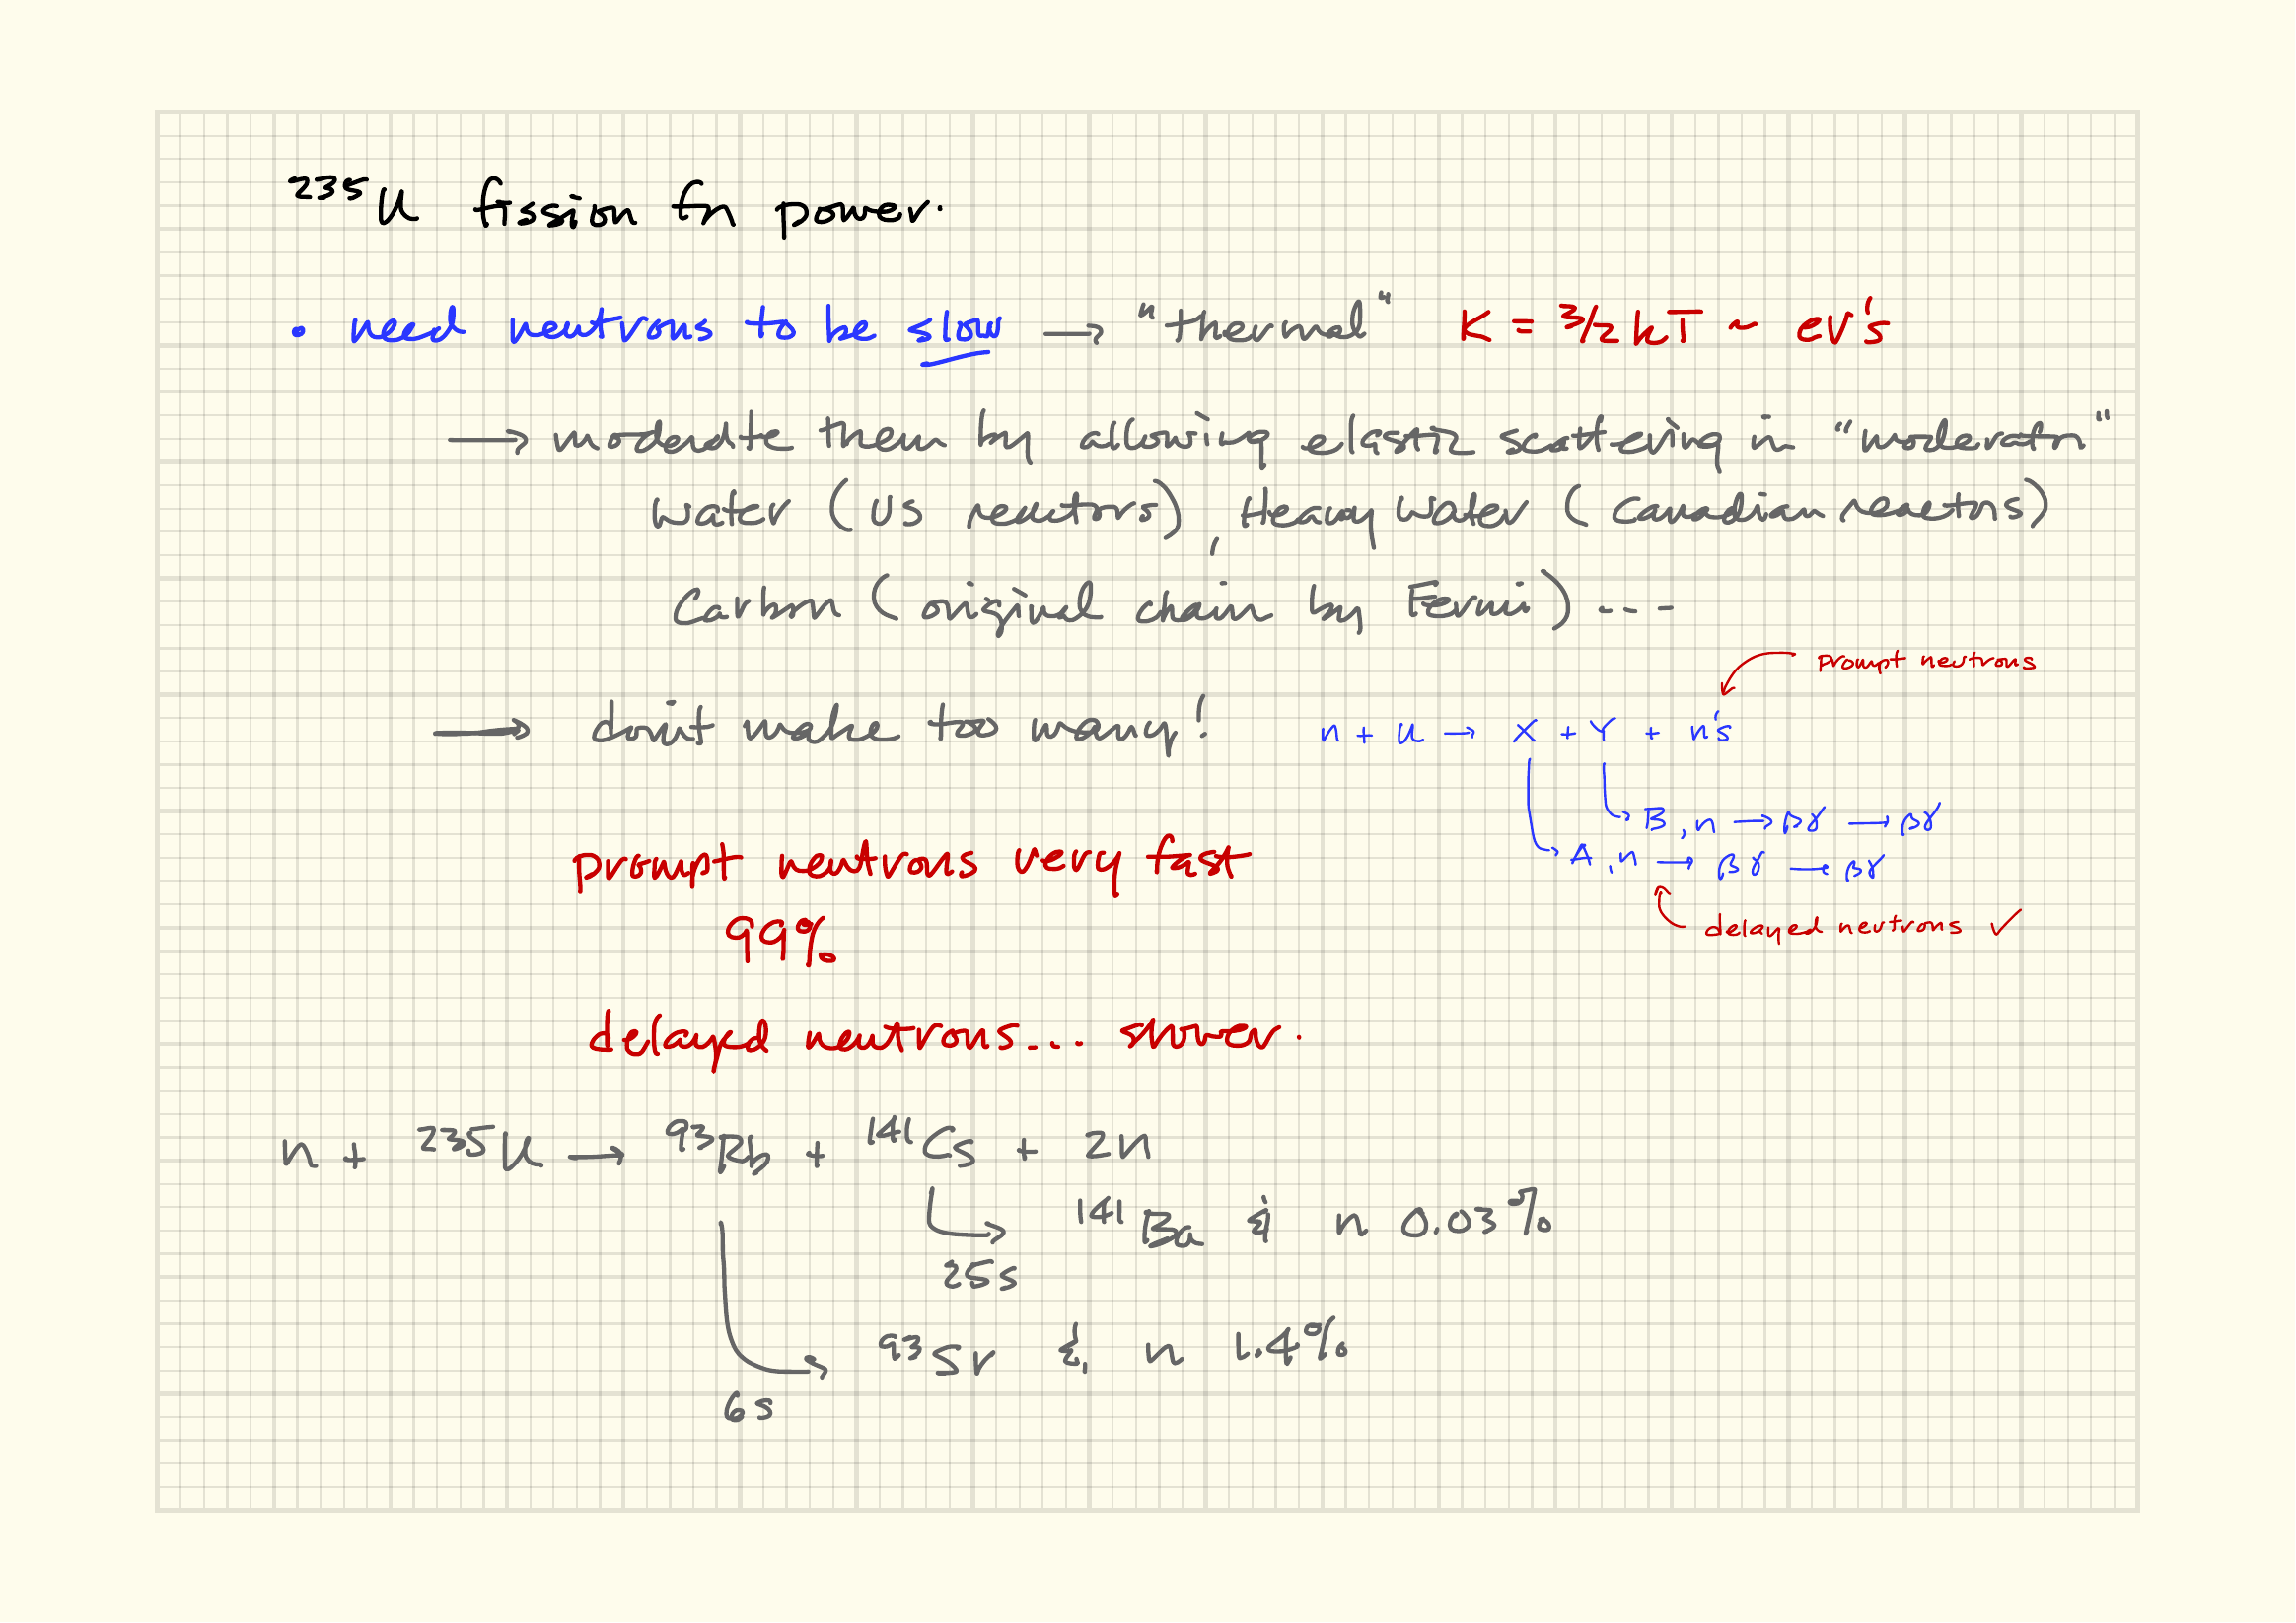 ²³⁵U fission for power.
• need neutrons to be slow → "thermal" K = 3/2 kT ~ eV's
→ moderate them by allowing elastic scattering in "moderator"
water (US reactors), Heavy Water (Canadian reactors)
Carbon (original chain by Fermi) ---
prompt neutrons
→ don't make too many! n + U → X + Y + n's
B, n → βγ → βγ
prompt neutrons very fast A, n → βγ → βγ
99% delayed neutrons ✓
delayed neutrons... slower.
n + ²³⁵U → ⁹³Rb + ¹⁴¹Cs + 2n
¹⁴¹Ba & n 0.03%
25s
⁹³Sr & n 1.4%
6s